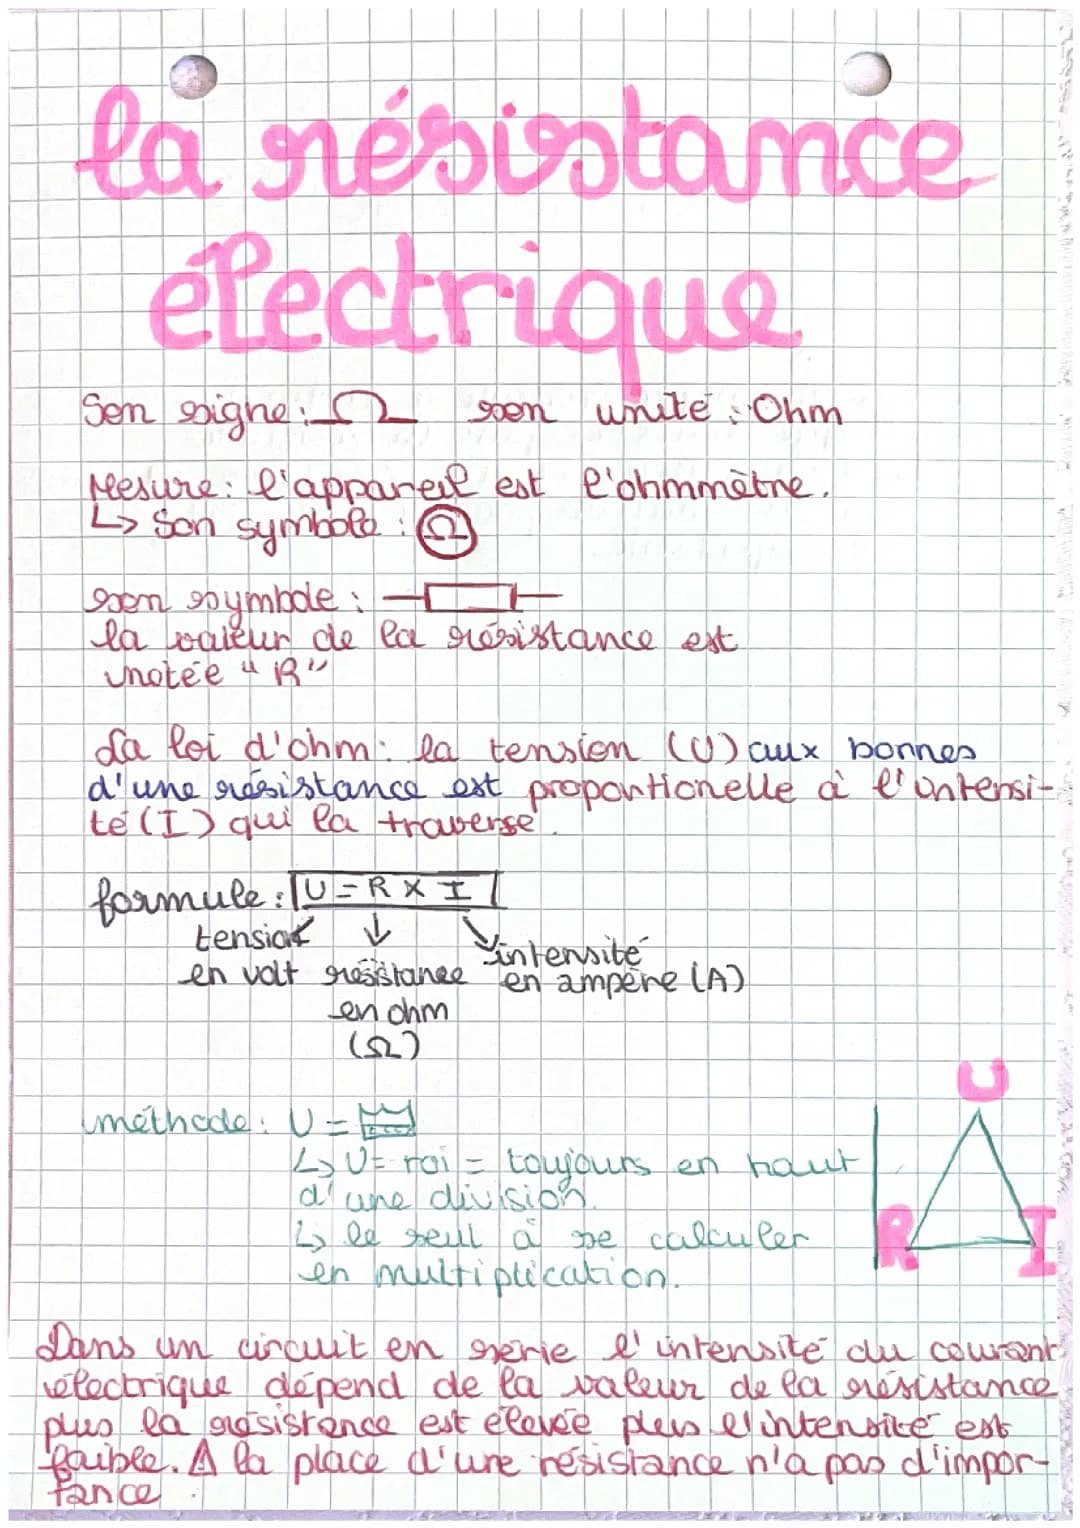 la résistance
électrique
Son signe : Ω son unité : Ohm
Mesure : l'appareil est l'ohmmètre.
↳ Son symbole : Ω
son symbole :
la valeur de la résistance est
notée "R"
La loi d'ohm : la tension (U) aux bornes
d'une résistance est proportionelle à l'intensi-
té (I) qui la traverse.
formule : U = R × I
tension
en volt
résistance
en ohm
(Ω)
intensité
en ampère (A)
méthode : U =
↳ U = roi = toujours en haut
d'une division.
↳ le seul à se calculer
en multiplication.
U
R I
Dans un circuit en série l'intensité du courant
électrique dépend de la valeur de la résistance
plus la résistance est élevée plus l'intensité est
faible. ⚠ la place d'une résistance n'a pas d'impor-
tance